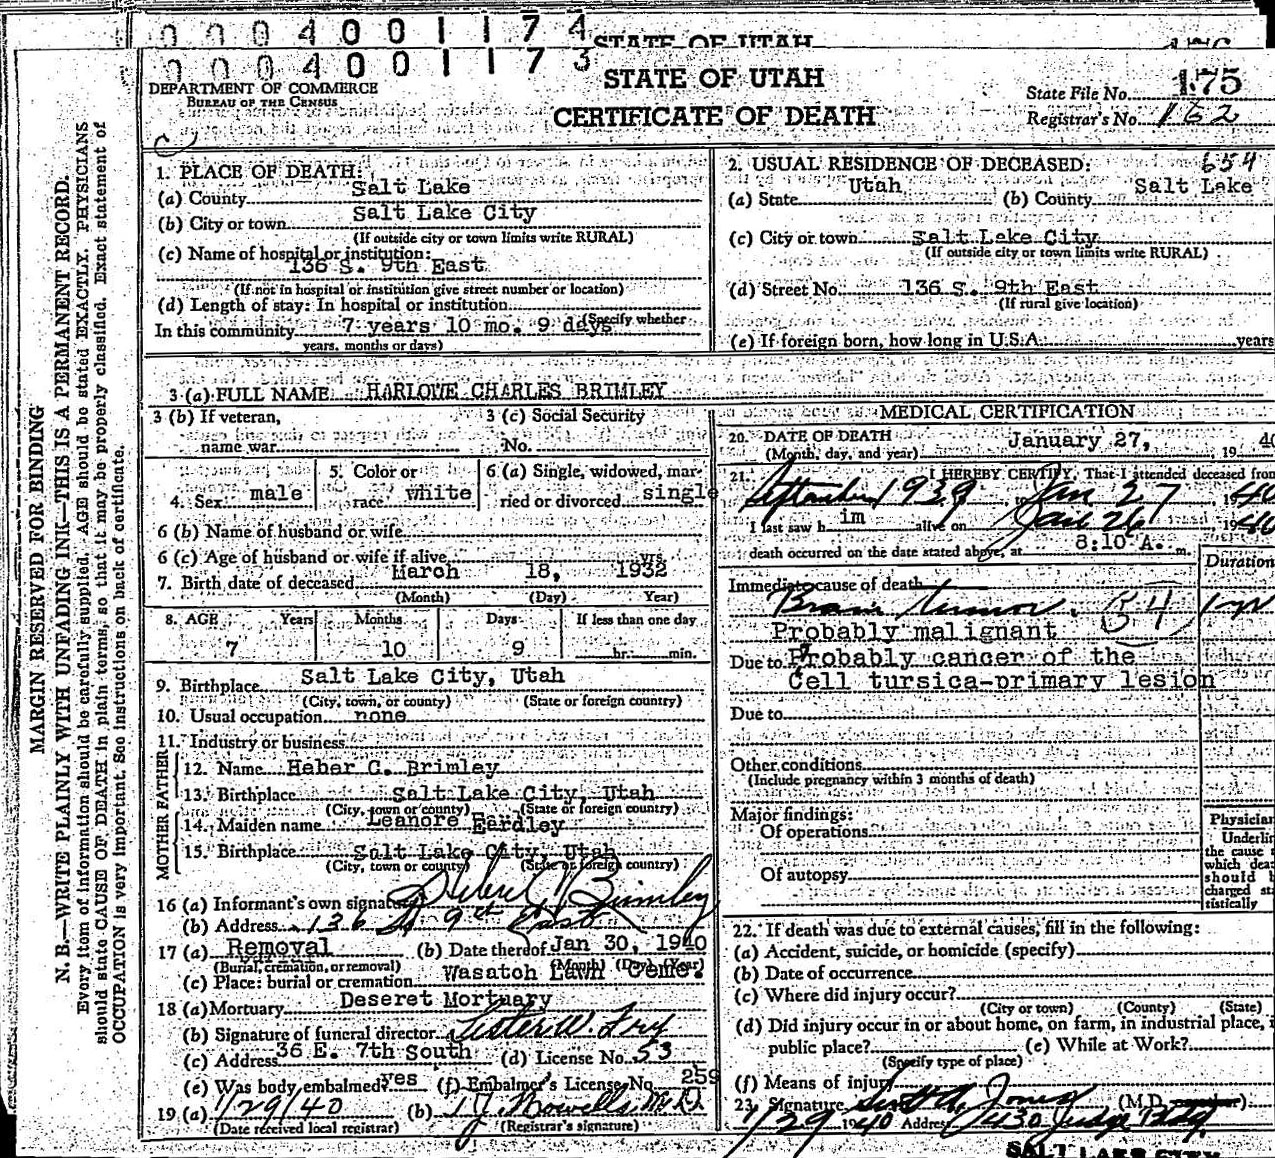 0004001174
STATE OF UTAH
0004001173
DEPARTMENT OF COMMERCE
BUREAU OF THE CENSUS
STATE OF UTAH
CERTIFICATE OF DEATH
State File No. 175
Registrar's No. 162
MARGIN RESERVED FOR BINDING
N. B.—WRITE PLAINLY WITH UNFADING INK—THIS IS A PERMANENT RECORD.
Every item of information should be carefully supplied. AGE should be stated EXACTLY. PHYSICIANS
should state CAUSE OF DEATH in plain terms, so that it may be properly classified. Exact statement of
OCCUPATION is very important. See instructions on back of certificate.
1. PLACE OF DEATH:
(a) County Salt Lake
(b) City or town Salt Lake City
(If outside city or town limits write RURAL)
(c) Name of hospital or institution:
136 S. 9th East
(If not in hospital or institution give street number or location)
(d) Length of stay: In hospital or institution
(Specify whether
In this community 7 years 10 mo. 9 days
years, months or days)
2. USUAL RESIDENCE OF DECEASED: 654
(a) State Utah (b) County Salt Lake
(c) City or town Salt Lake City
(If outside city or town limits write RURAL)
(d) Street No. 136 S. 9th East
(If rural give location)
(e) If foreign born, how long in U.S.A. years
3 (a) FULL NAME HARLOWE CHARLES BRIMLEY
3 (b) If veteran,
name war
3 (c) Social Security
No.
4. Sex male
5. Color or
race white
6 (a) Single, widowed, mar-
ried or divorced single
6 (b) Name of husband or wife
6 (c) Age of husband or wife if alive yrs.
7. Birth date of deceased March 18, 1932
(Month) (Day) Year)
8. AGE Years Months Days If less than one day
7 10 9 hr. min.
9. Birthplace Salt Lake City, Utah
(City, town, or county) (State or foreign country)
10. Usual occupation none
11. Industry or business
FATHER
12. Name Heber C. Brimley
13. Birthplace Salt Lake City, Utah
(City, town or county) (State of foreign country)
MOTHER
14. Maiden name Leanore Eardley
15. Birthplace Salt Lake City, Utah
(City, town or county) (State or foreign country)
16 (a) Informant's own signature Heber C Brimley
(b) Address 136 So 9th East
17 (a) Removal (b) Date thereof Jan 30, 1940
(Burial, cremation, or removal) (Month) (Day) (Year)
(c) Place: burial or cremation Wasatch Lawn Ceme.
18 (a) Mortuary Deseret Mortuary
(b) Signature of funeral director Lester W. Fry
(c) Address 36 E. 7th South (d) License No. 53
(e) Was body embalmed? yes (f) Embalmer's License No. 259
19 (a) 1/29/40 (b) T J Howells M.D.
(Date received local registrar) (Registrar's signature)
MEDICAL CERTIFICATION
20. DATE OF DEATH January 27, 19 40
(Month, day, and year)
21. I HEREBY CERTIFY, That I attended deceased from
September 1939 to Jan 27 1940
I last saw him alive on Jan 26 1940
death occurred on the date stated above, at 8:10 A. m.
Duration
Immediate cause of death
Brain tumor. 54 1 yr
Probably malignant
Due to Probably cancer of the
Cell tursica-primary lesion
Due to
Other conditions
(Include pregnancy within 3 months of death)
Major findings:
Of operations
Of autopsy
Physician
Underlin
the cause
which dea
should b
charged sta
tistically
22. If death was due to external causes, fill in the following:
(a) Accident, suicide, or homicide (specify)
(b) Date of occurrence
(c) Where did injury occur?
(City or town) (County) (State)
(d) Did injury occur in or about home, on farm, in industrial place, i
public place? (e) While at Work?
(Specify type of place)
(f) Means of injury
23. Signature Jones (M.D.
1/29 1940 Address 430 Judge Bldg.
SALT LAKE CITY